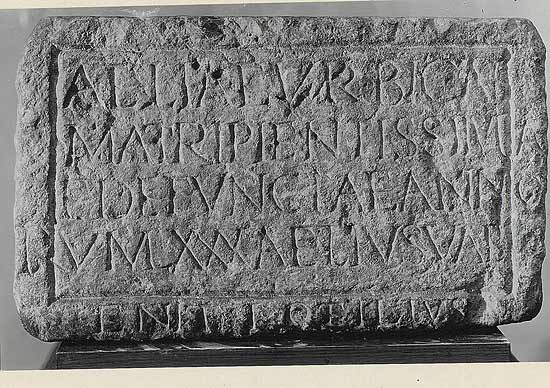 AELIAE VRBICAE
MATRI PIENTISSIMA
E DEFVNCTAE ANNO
RVM XXX AELIVS VAL
FILIVS